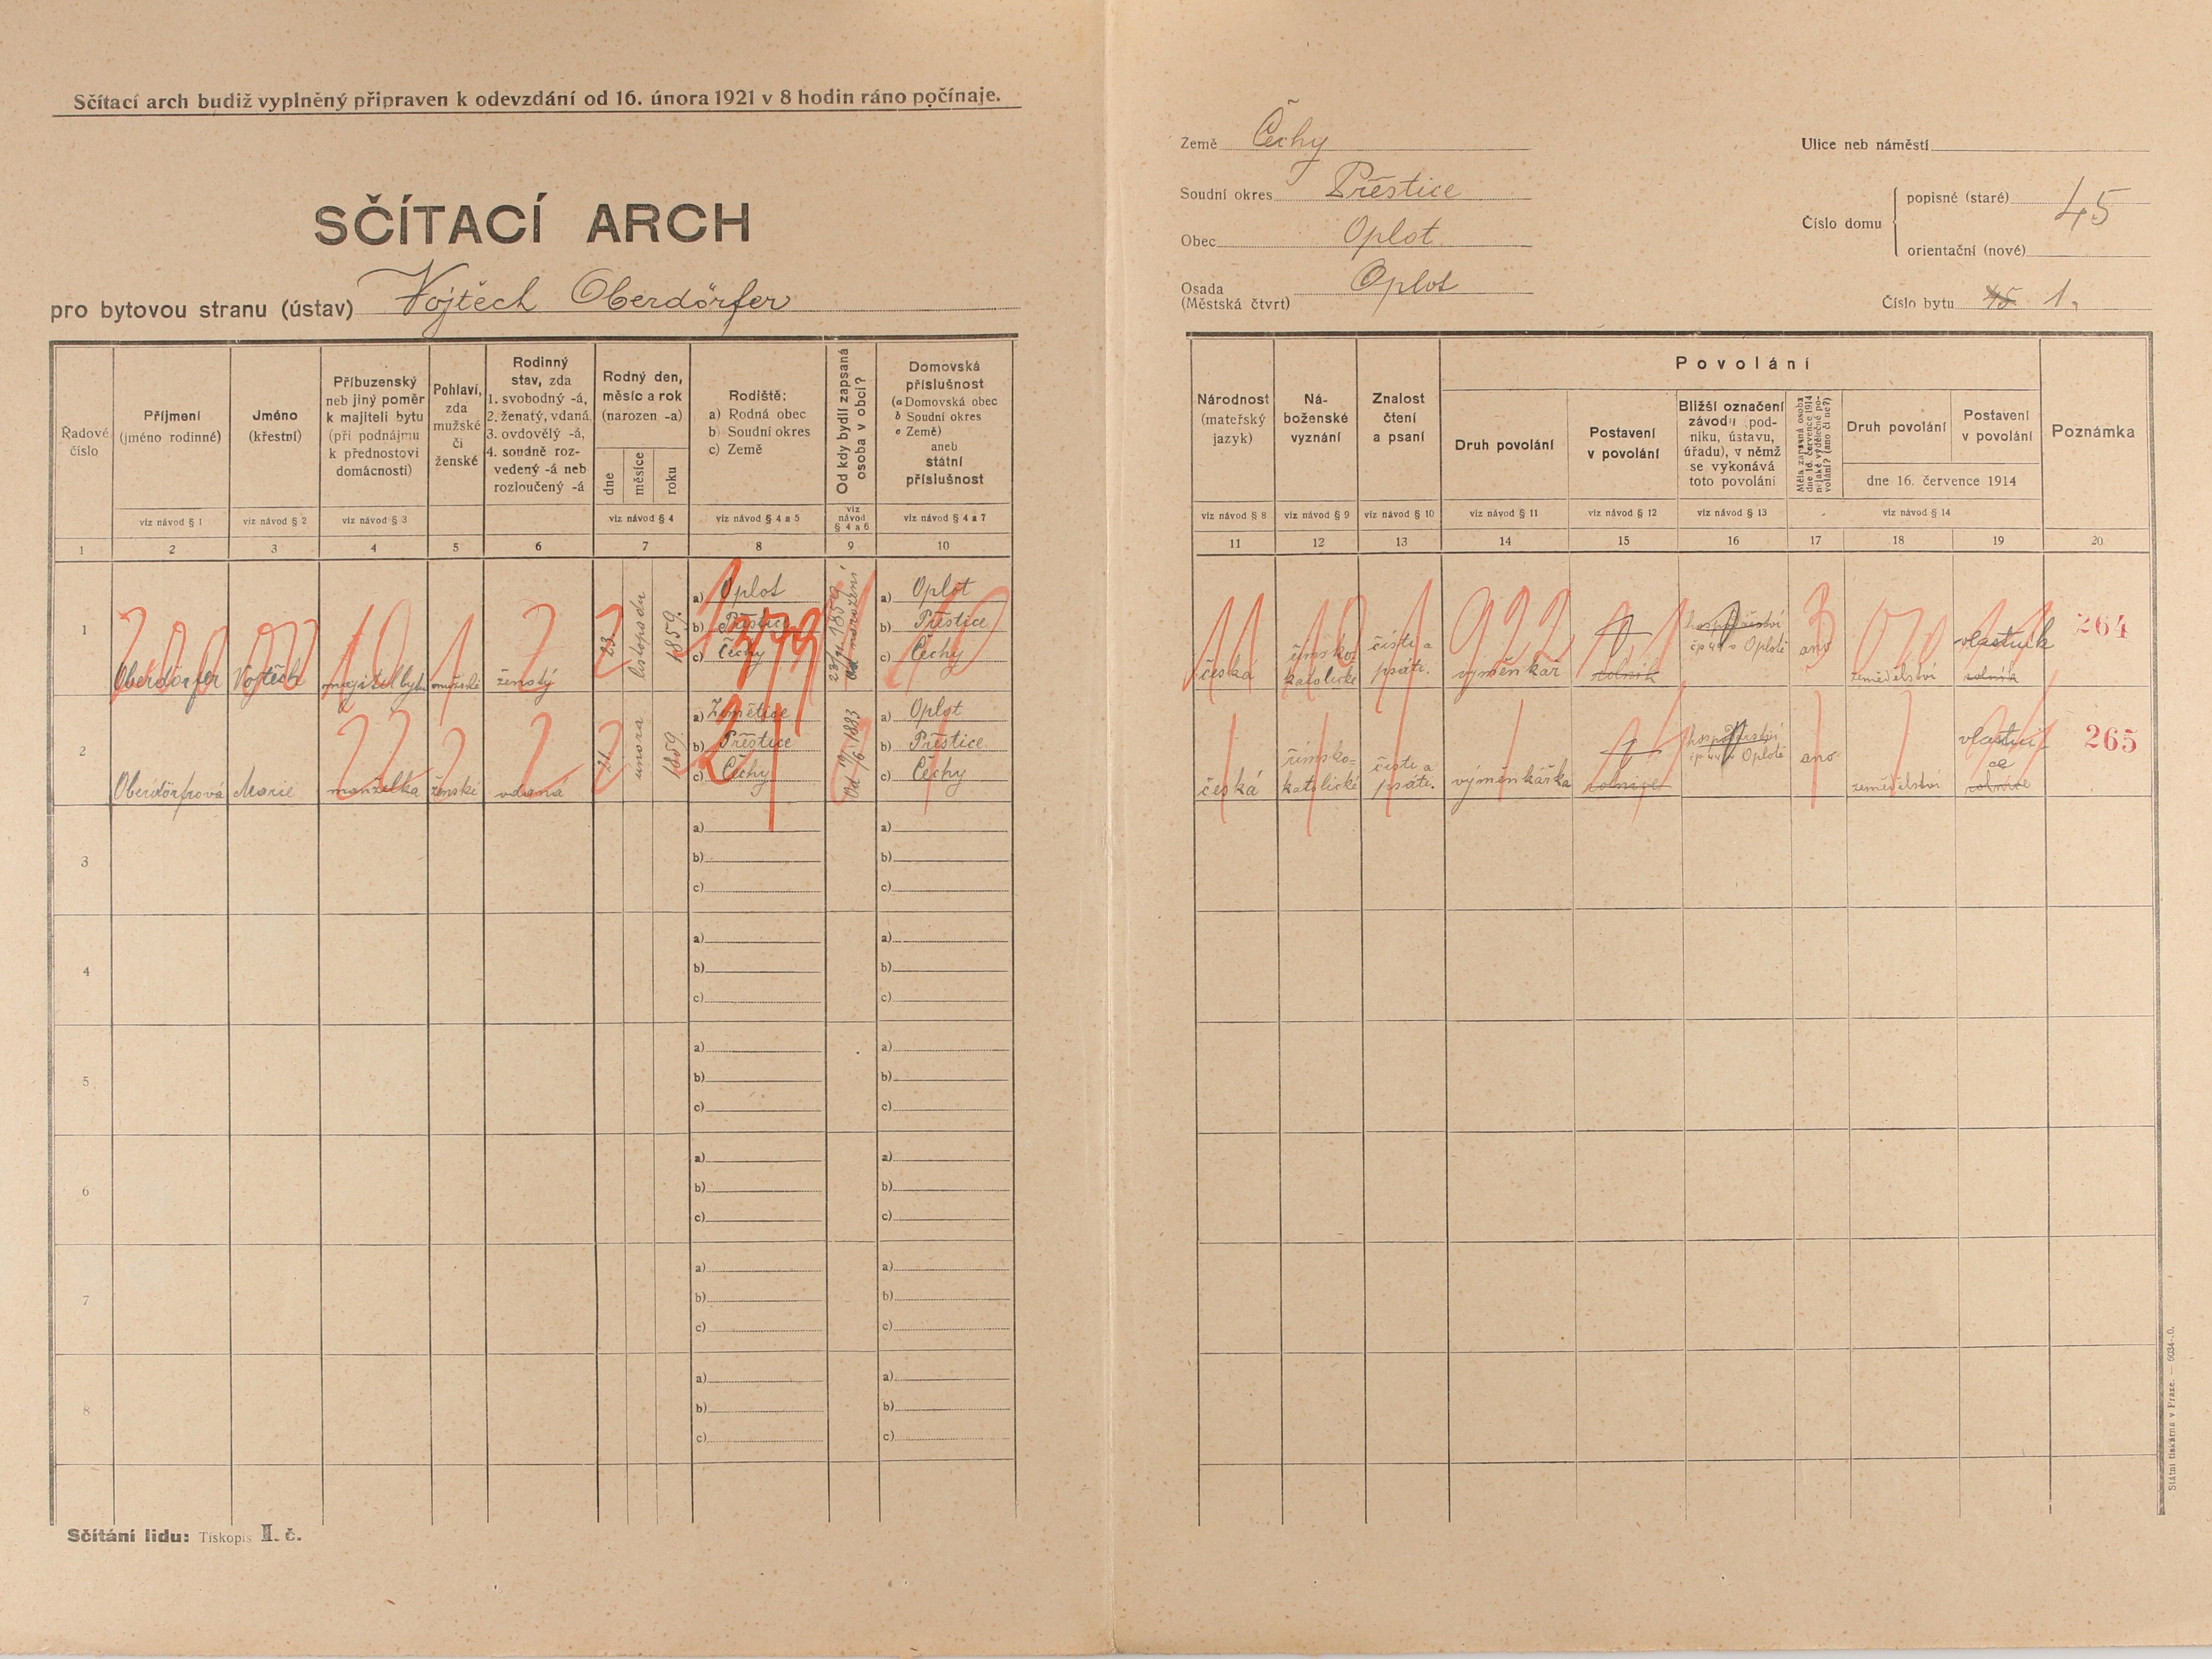 Sčítací arch budiž vyplněný připraven k odevzdání od 16. února 1921 v 8 hodin ráno počínaje.
SČÍTACÍ ARCH
pro bytovou stranu (ústav) Vojtěch Oberdörfer
Země Čechy
Soudní okres Přeštice
Obec Oplot
Osada Oplot
(Městská čtvrt)
Ulice neb náměstí
Číslo domu
popisné (staré) 45
orientační (nové)
Číslo bytu 45 1.
Řadové
číslo
Příjmení
(jméno rodinné)
viz návod § 1
Jméno
(křestní)
viz návod § 2
Příbuzenský
neb jiný poměr
k majiteli bytu
(při podnájmu
k přednostovi
domácnosti)
viz návod § 3
Pohlaví,
zda
mužské
či
ženské
Rodinný
stav, zda
1. svobodný -á,
2. ženatý, vdaná,
3. ovdovělý -á,
4. soudně roz-
vedený -á neb
rozloučený -á
Rodný den,
měsíc a rok
(narozen -a)
dne
měsíce
roku
viz návod § 4
Rodiště:
a) Rodná obec
b) Soudní okres
c) Země
viz návod § 4 a 5
Od kdy bydlí zapsaná
osoba v obci?
viz
návod
§ 4 a 6
Domovská
příslušnost
(a Domovská obec
b Soudní okres
c Země)
aneb
státní
příslušnost
viz návod § 4 a 7
Národnost
(mateřský
jazyk)
viz návod § 8
Ná-
boženské
vyznání
viz návod § 9
Znalost
čtení
a psaní
viz návod § 10
Povolání
Druh povolání
viz návod § 11
Postavení
v povolání
viz návod § 12
Bližší označení
závodu (pod-
niku, ústavu,
úřadu), v němž
se vykonává
toto povolání
viz návod § 13
Měla zapsaná osoba
dne 16. července 1914
nějaké výdělečné po-
volání? (ano či ne?)
Druh povolání
Postavení
v povolání
dne 16. července 1914
viz návod § 14
Poznámka
1 2 3 4 5 6 7 8 9 10 11 12 13 14 15 16 17 18 19 20
1
Oberdörfer
Vojtěch
majitel bytu
mužské
ženatý
23
listopadu
1859.
a) Oplot
b) Přeštice
c) Čechy
od narození
a) Oplot
b) Přeštice
c) Čechy
česká
římsko-
katolické
čísti a
psáti.
922
výměnkář
rolník
hospodářství
čp 44 v Oplotě
ano
zemědělství
vlastník
rolník
264
2
Oberdörfrová
Marie
manželka
ženské
vdaná
21.
února
1859
a) Zemětice
b) Přeštice
c) Čechy
a) Oplot
b) Přeštice
c) Čechy
česká
římsko-
katolické
čísti a
psáti.
výměnkářka
rolnice
ano
zemědělství
vlastní
ce
rolnice
265
3
a)
b)
c)
a)
b)
c)
4
a)
b)
c)
a)
b)
c)
5
a)
b)
c)
a)
b)
c)
6
a)
b)
c)
a)
b)
c)
7
a)
b)
c)
a)
b)
c)
8
a)
b)
c)
a)
b)
c)
Sčítání lidu: Tiskopis II. č.
Státní tiskárna v Praze. — 6034-.0.